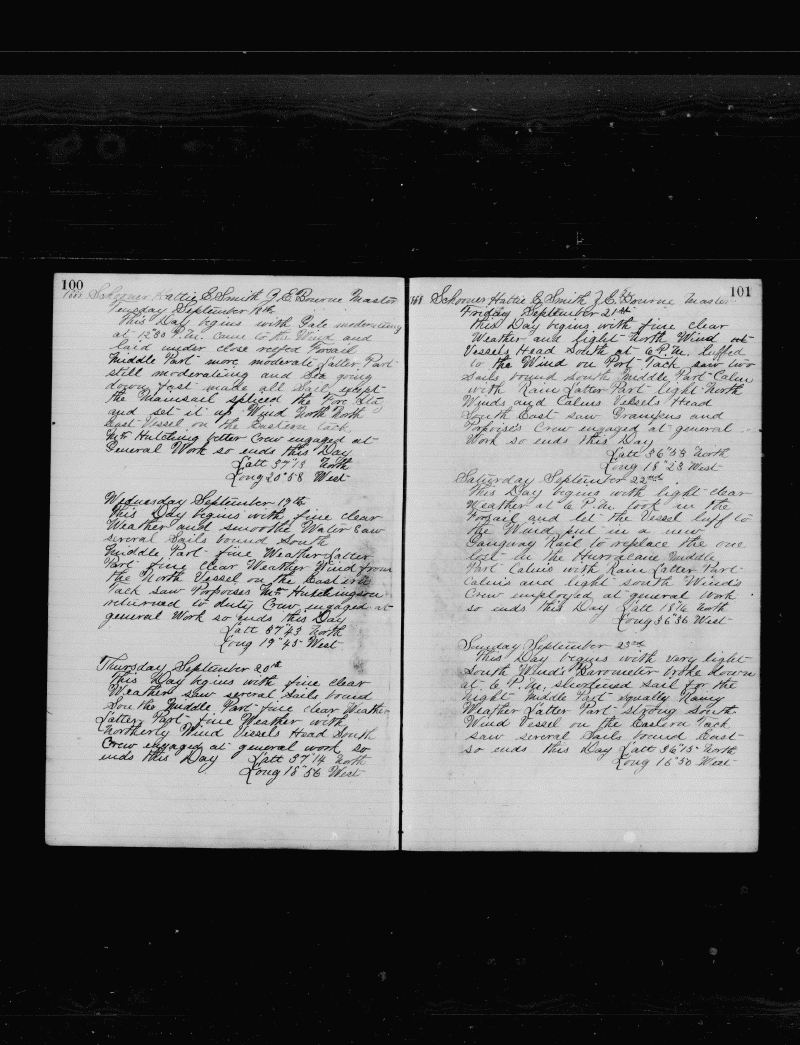 100
1888 Schooner Hattie E Smith J. E. Bourne Master
Tuesday September 18th
This Day begins with Gale moderating
at 12"30 P.M. came to the Wind and
laid under close reefed Forsail
Middle Part more moderate Latter Part
still moderating and Sea going
down fast made all Sail except
the Mainsail spliced the Fore Stay
and set it up Wind North North
East Vessel on the Eastern tack
Mr Hutchings better Crew engaged at
General Work so ends this Day
Latt 37"13 North
Long 20"58 West
Wednesday September 19th
This Day begins with fine clear
Weather and smooth Water Saw
several Sails bound South
Middle Part fine Weather Latter
Part fine clear Weather Wind from
the North Vessel on the Eastern
Tack saw Porpoises Mr Hutchingson
returned to duty Crew engaged at
general Work so ends this Day
Latt 37"43 North
Long 19"45 West
Thursday September 20th
This Day begins with fine clear
Weather saw several Sails bound
South Middle Part fine clear Weather
Latter Part fine Weather with
Northerly Wind Vessels Head South
Crew engaged at general work so
ends this Day Latt 37"14 North
Long 18"56 West
101
1888 Schooner Hattie E Smith J. E. Bourne Master
Friday September 21st
This Day begins with fine clear
Weather and light North Wind
Vessels Head South at 6 P.M. luffed
to the Wind on Port Tack saw two
Sails bound South Middle Part Calm
with Rain Latter Part light North
Winds and Calms Vessels Head
South East saw Grampus and
Porpoises Crew engaged at general
Work so ends this Day
Latt 36"53 North
Long 18"23 West
Saturday September 22nd
This Day begins with light clear
Weather at 6 P.M. took in the
Forsail and let the Vessel luff to
the Wind put in a new
Gangway Rail to replace the one
lost in the Hurricane Middle
Part Calms with Rain Latter Part
Calms and light South Winds
Crew employed at general Work
so ends this Day Latt North
Long 36"36 West
Sunday September 23rd
This Day begins with very light
South Winds Barometer broke down
at 6 P.M. shortened sail for the
Night Middle Part squally Rainy
Weather Latter Part strong South
Wind Vessel on the Eastern Tack
saw several Sails bound East
so ends this Day Latt 36"15 North
Long 16"50 West